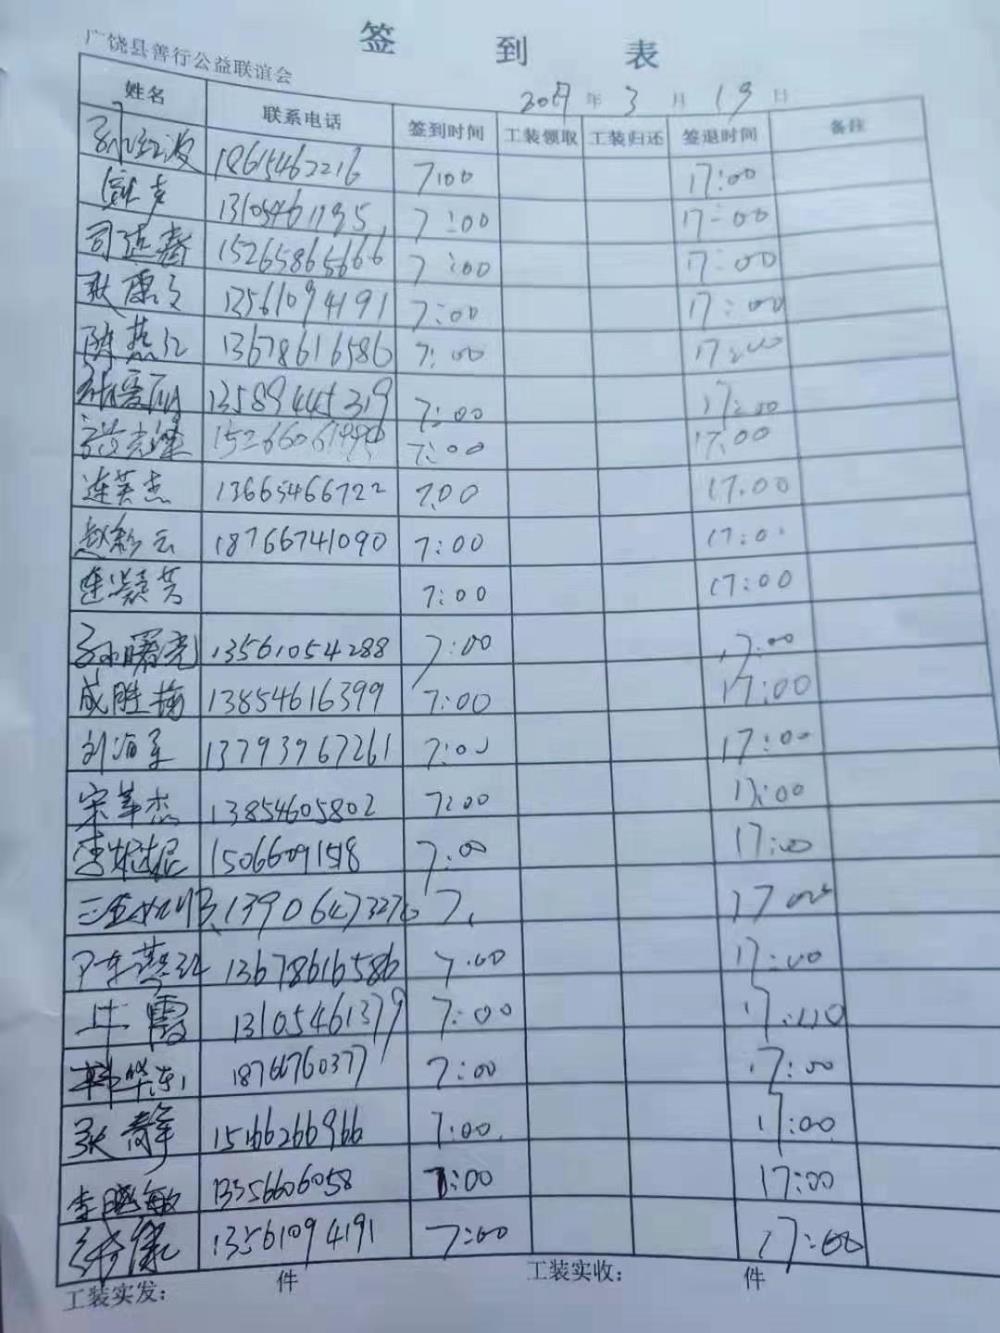 签 到 表
广饶县善行公益联谊会
年 3 月 19 日
姓名 联系电话 签到时间 工装领取 工装归还 签退时间 备注
孙红波 18615462216 7:00 17:00
7:00 17:00
司延春 15265865666 7:00 17:00
耿 13561094191 7:00 17:00
陈燕红 13678616586 7:00 17:00
张爱丽 13589445319 7:00 17:00
7:00 17:00
连英杰 13665466722 7:00 17:00
赵彩云 18766741090 7:00 17:00
连 芳 7:00 17:00
孙曙光 13561054288 7:00 17:00
成胜梅 13854616399 7:00 17:00
刘海军 13793967261 7:00 17:00
宋 杰 13854605802 7:00 17:00
李 7:00 17:00
7: 17:00
陈燕红 13678616586 7:00 17:00
牛霞 13105461379 7:00 17:00
韩华东 18766760377 7:00 17:00
耿静 15166266966 7:00 17:00
李晓敏 13356606058 7:00 17:00
13561094191 7:00 17:00
工装实发： 件 工装实收： 件